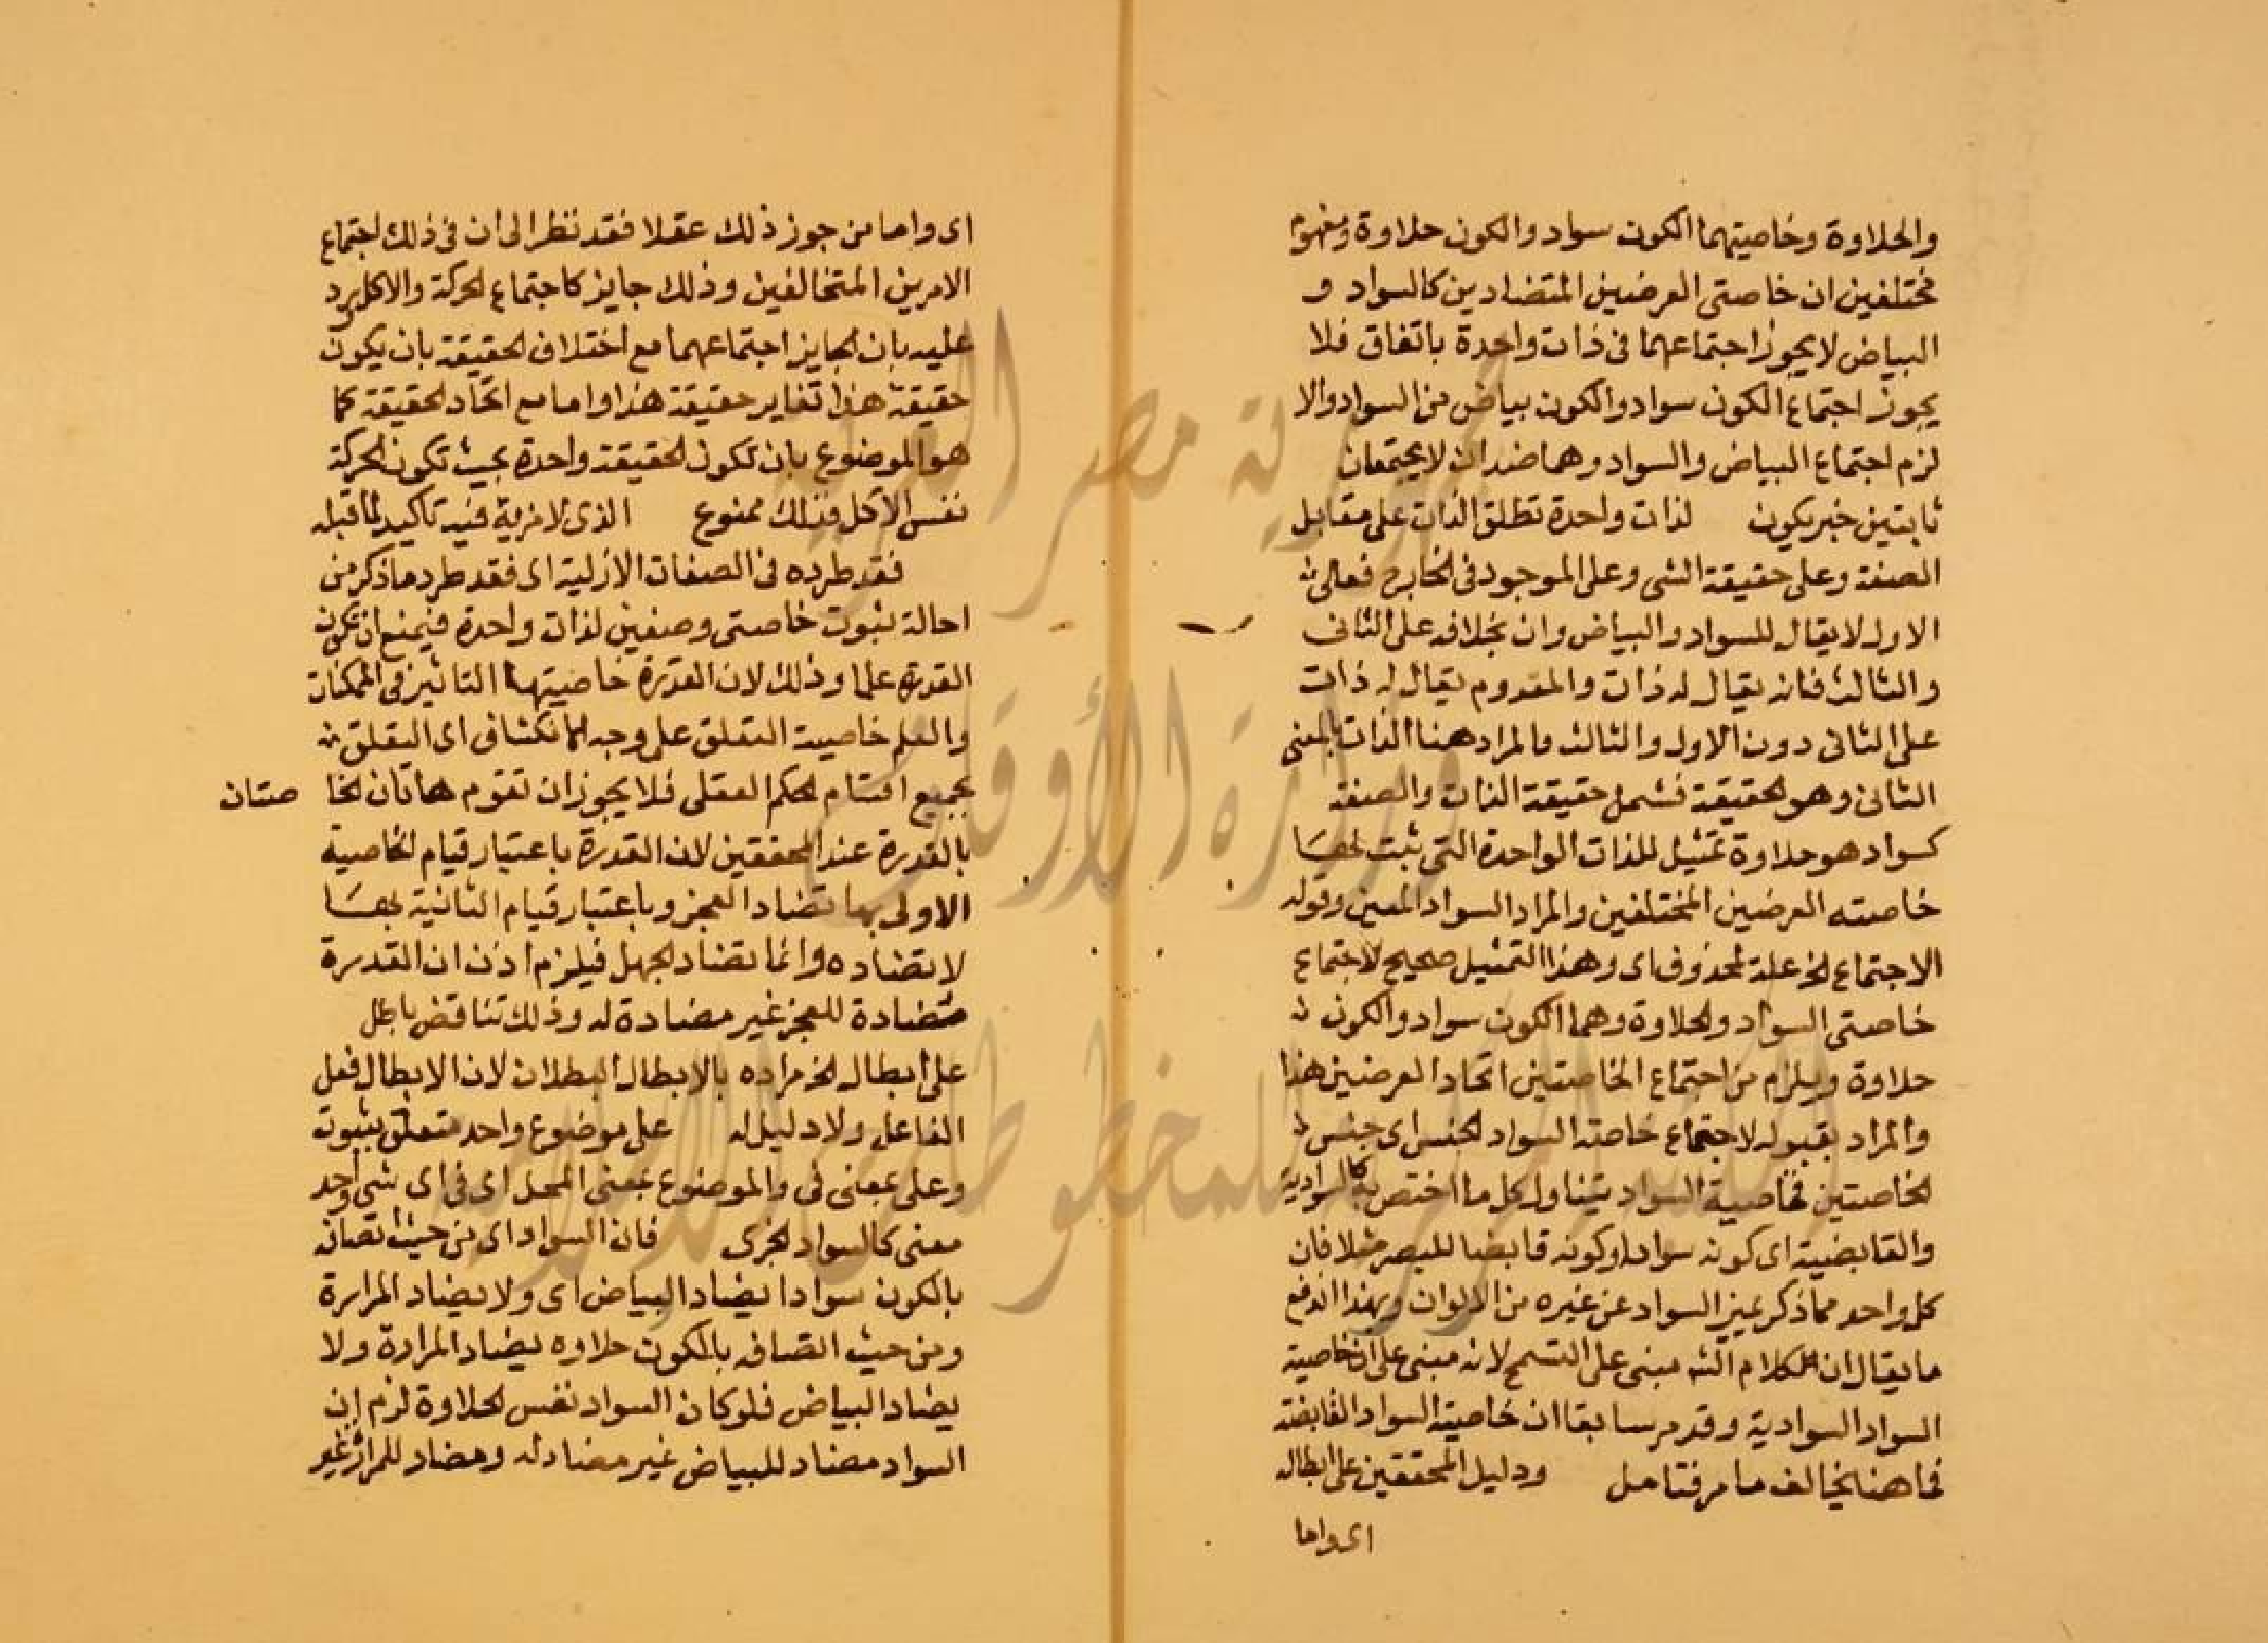 والحلاوة وخاصيتهما الكون سواد والكون حلاوة ومفهوم
مختلفين ان خاصتى العرضين المتضادين كالسواد و
البياض لا يجوز اجتماعهما فى ذات واحدة باتفاق فلا
يجوز اجتماع الكون سواد والكون بياض من السواد والا
لزم اجتماع البياض والسواد وهما ضدان لا يجتمعان
ثابتين خبر يكون لذات واحدة تطلق الذات على مقابل
الصفة وعلى حقيقة الشى وعلى الموجود فى الخارج فعلى
الاول لا يقال للسواد والبياض وان بخلافه على الثانى
والثالث فانه يقال له ذات والمعدوم يقال له ذات
على الثانى دون الاول والثالث والمراد هنا الذات بالمعنى
الثانى وهو الحقيقة فشمل حقيقة الذات والصفة
كسواد هو حلاوة تمثيل للذات الواحدة التى ثبت لها
خاصته العرضين المختلفين والمراد السواد المعين وقوله
الاجتماع الخ علة لمحذوف اى وهذا التمثيل صحيح لاجتماع
خاصتى السواد والحلاوة وهما الكون سواد والكون
حلاوة ويلزم من اجتماع الخاصتين اتحاد العرضين هذا
والمراد بقوله لاجتماع خاصته السواد الجنس اى جنس
الخاصتين فخاصية السواد يتناول كل ما اختص به كالسوادية
والقابضية اى كونه سوادا وكونه قابضا للبصر مثلا فان
كل واحد مما ذكر يميز السواد عن غيره من الالوان وبهذا اندفع
ما يقال ان كلام الش مبنى على التسمح لانه مبنى على ان خاصية
السواد السوادية وقد مر سابقا ان خاصية السواد القابضة
فما هنا يخالف ما مر فتامل ودليل المحققين على ابطاله
اى واما
اى واما من جوز ذلك عقلا فقد نظر الى ان فى ذلك اجتماع
الامرين المتخالفين وذلك جايز كاجتماع الحركة والاكل يرد
عليه بان الجايز اجتماعهما مع اختلاف الحقيقة بان يكون
حقيقة هذا تغاير حقيقة هذا واما مع اتحاد الحقيقة كما
هو الموضوع بان تكون الحقيقة واحدة بحيث تكون الحركة
نفس الاكل فذلك ممنوع الذى لا مزية فيه تاكيد لما قبله
فقد طرده فى الصفات الازلية اى فقد طرد ما ذكر من
احالة ثبوت خاصتى وصفين لذات واحدة فيمنع ان تكون
القدرة علما وذلك لان القدرة خاصيتها التاثير فى الممكنات
والعلم خاصيته التعلق على وجه الانكشاف اى التعلق
بجميع اقسام الحكم العقلى فلا يجوز ان تقوم هاتان الخا صتان
بالقدرة عند المحققين لان القدرة باعتبار قيام الخاصية
الاولى بها تضاد العجز وباعتبار قيام الثانية بها
لا تضاده وانما تضاد الجهل فيلزم اذن ان القدرة
مضادة للعجز غير مضادة له وذلك تناقض باطل
على ابطال الخ مراده بالابطال البطلان لان الابطال فعل
الفاعل ولا دليل له على موضوع واحد متعلق بثبوت
وعلى بمعنى فى والموضوع بمعنى المحل اى فى اى شى واحد
معنى كالسواد الجزى فان السواد اى من حيث اتصافه
بالكون سوادا يضاد البياض اى ولا يضاد المرارة
ومن حيث اتصافه بالكون حلاوه يضاد المرارة ولا
يضاد البياض فلو كان السواد نفس الحلاوة لزم ان
السواد مضاد للبياض غير مضاد له ومضاد للمرارة غير
جمهورية مصر العربية
وزارة الأوقاف